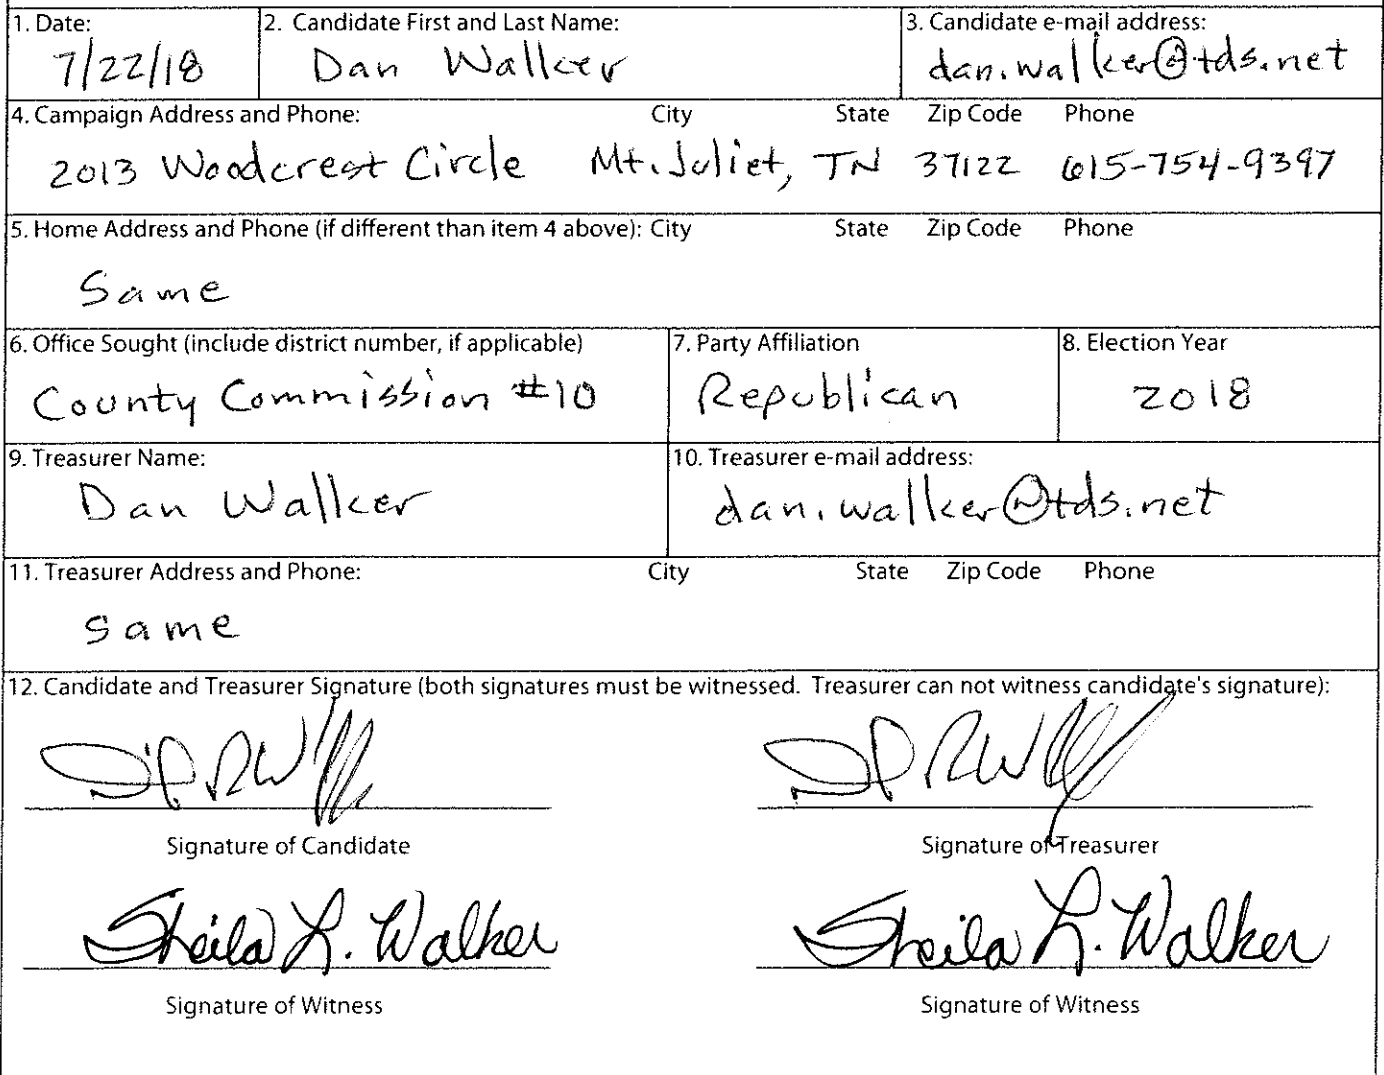 1. Date: 2. Candidate First and Last Name: 3. Candidate e-mail address:
7/22/18 Dan Walker dan.walker@tds.net
4. Campaign Address and Phone: City State Zip Code Phone
2013 Woodcrest Circle Mt. Juliet, TN 37122 615-754-9397
5. Home Address and Phone (if different than item 4 above): City State Zip Code Phone
Same
6. Office Sought (include district number, if applicable) 7. Party Affiliation 8. Election Year
County Commission #10 Republican 2018
9. Treasurer Name: 10. Treasurer e-mail address:
Dan Walker dan.walker@tds.net
11. Treasurer Address and Phone: City State Zip Code Phone
same
12. Candidate and Treasurer Signature (both signatures must be witnessed. Treasurer can not witness candidate's signature):
Signature of Candidate Signature of Treasurer
Sheila L. Walker Sheila L. Walker
Signature of Witness Signature of Witness